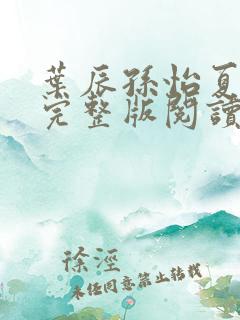 葉辰孫怡夏
完整版閱讀
徐涇
未經同意禁止轉載